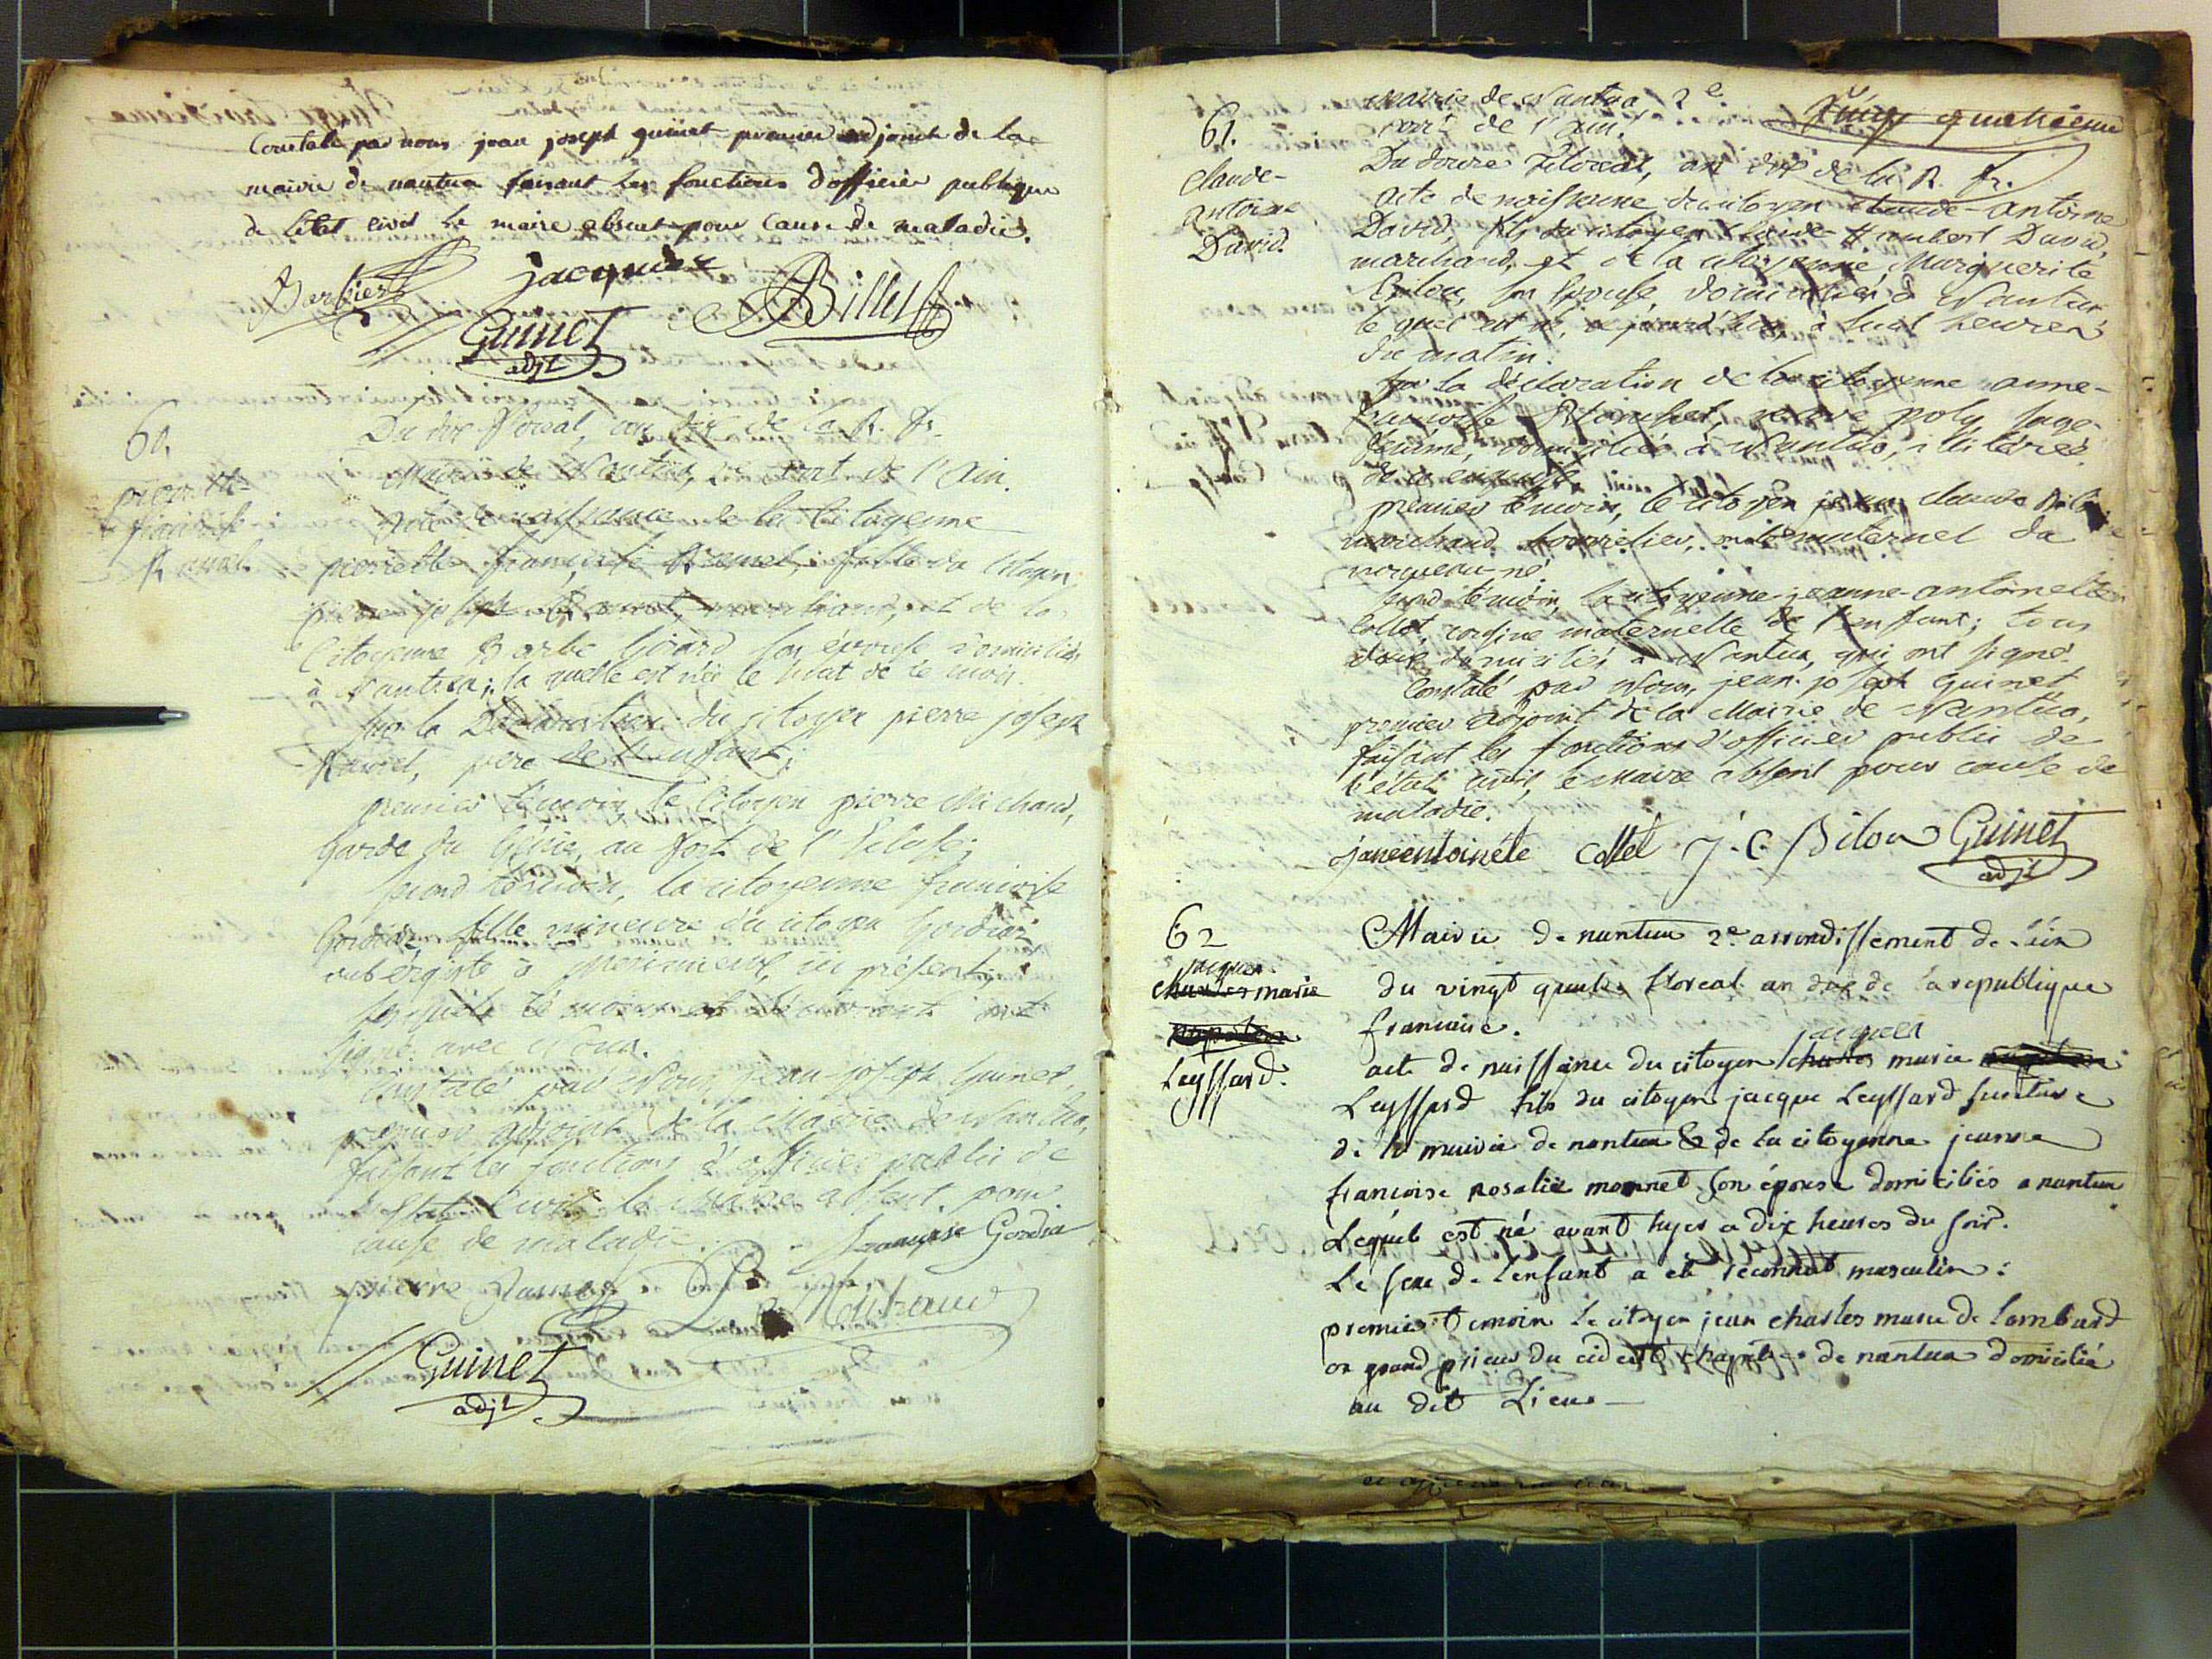 Constaté par nous jean joseph guinet premier adjoint de la
mairie de nantua faisant les fonctions d'officier publique
de l'etat civil le maire absent pour cause de maladie.
Barbier jacquier Billiet
Guinet
adjt
60.
pierrette
francoise
Ramel
Du dix floréal, an dix de la R. Fr.
Mairie de Nantua, 2e arrt de l'Ain.
Acte de naissance de la Citoyenne
pierrette françoise Ramel, fille du Citoyen
pierre joseph Ramel, marchand, et de la
Citoyenne Barbe Girard son épouse domiciliés
à Nantua; la quelle est née le huit de ce mois.
Sur la Déclaration du citoyen pierre joseph
Ramel, père de l'enfant;
premier témoin, le Citoyen pierre Michaud,
Garde du Génie, au fort de l'Ecluse;
second témoin, la citoyenne francoise
Gordiat, fille mineure du citoyen Gordiat
aubergiste à, ici présent;
lesquels témoins et déclarant ont
signé avec Nous.
Constaté par Nous jean-joseph Guinet,
premier adjoint de la Mairie de Nantua,
faisant les fonctions d'officier public de
l'Etat Civil, le Maire absent pour
cause de maladie.
françoise Gordia
pierre Ramel P. Michaud
Guinet
adjt
feuille quatrieme
61.
Claude-
antoine
David.
Mairie de Nantua, 2e
arrt de l'Ain.
Du douze floréal, an dix de la R. fr.
acte de naissance du citoyen Claude-antoine
David, fils du citoyen Claude-Humbert David,
marchand, et de la citoyenne Marguerite
son épouse, domiciliés à Nantua
le quel est né, aujourd'hui à huit heures
du matin.
Sur la déclaration de la citoyenne anne-
francoise, veuve poly, sage-
femme, domiciliée à Nantua, illitérée
de ce enquise.
premier témoin, le citoyen jean claude Bilon
marchand bourrelier, maternel du
nouveau-né.
second témoin, la citoyenne jeanne-antoinette
Collet, cousine maternelle de l'enfant; tous
deux domiciliés à Nantua, qui ont signé.
Constaté par Nous, jean-joseph Guinet
premier adjoint de la Mairie de Nantua,
faisant les fonctions d'officier public de
l'état civil, le Maire absent pour cause de
maladie.
janeentoinéte collet J. C Bilon Guinet
adjt
62
jacques
charles marie
Leyssard.
Mairie de nantua 2e arrondissement de l'ain
du vingt quatre floreal an dix de la republique
francaise.
jacques
acte de naissance du citoyen charles marie
Leyssard fils du citoyen jacque Leyssard
de la mairie de nantua & de la citoyenne jeanne
francoise rosalie monnet son épouse domiciliés a nantua
Lequel est né avant hyer a dix heures du soir.
Le sexe de l'enfant a eté reconnut masculin:
premier temoin le citoyen jean charles marie de lombard
ex grand prieur du cidevt chapitre de nantua domicilié
au dit Lieu